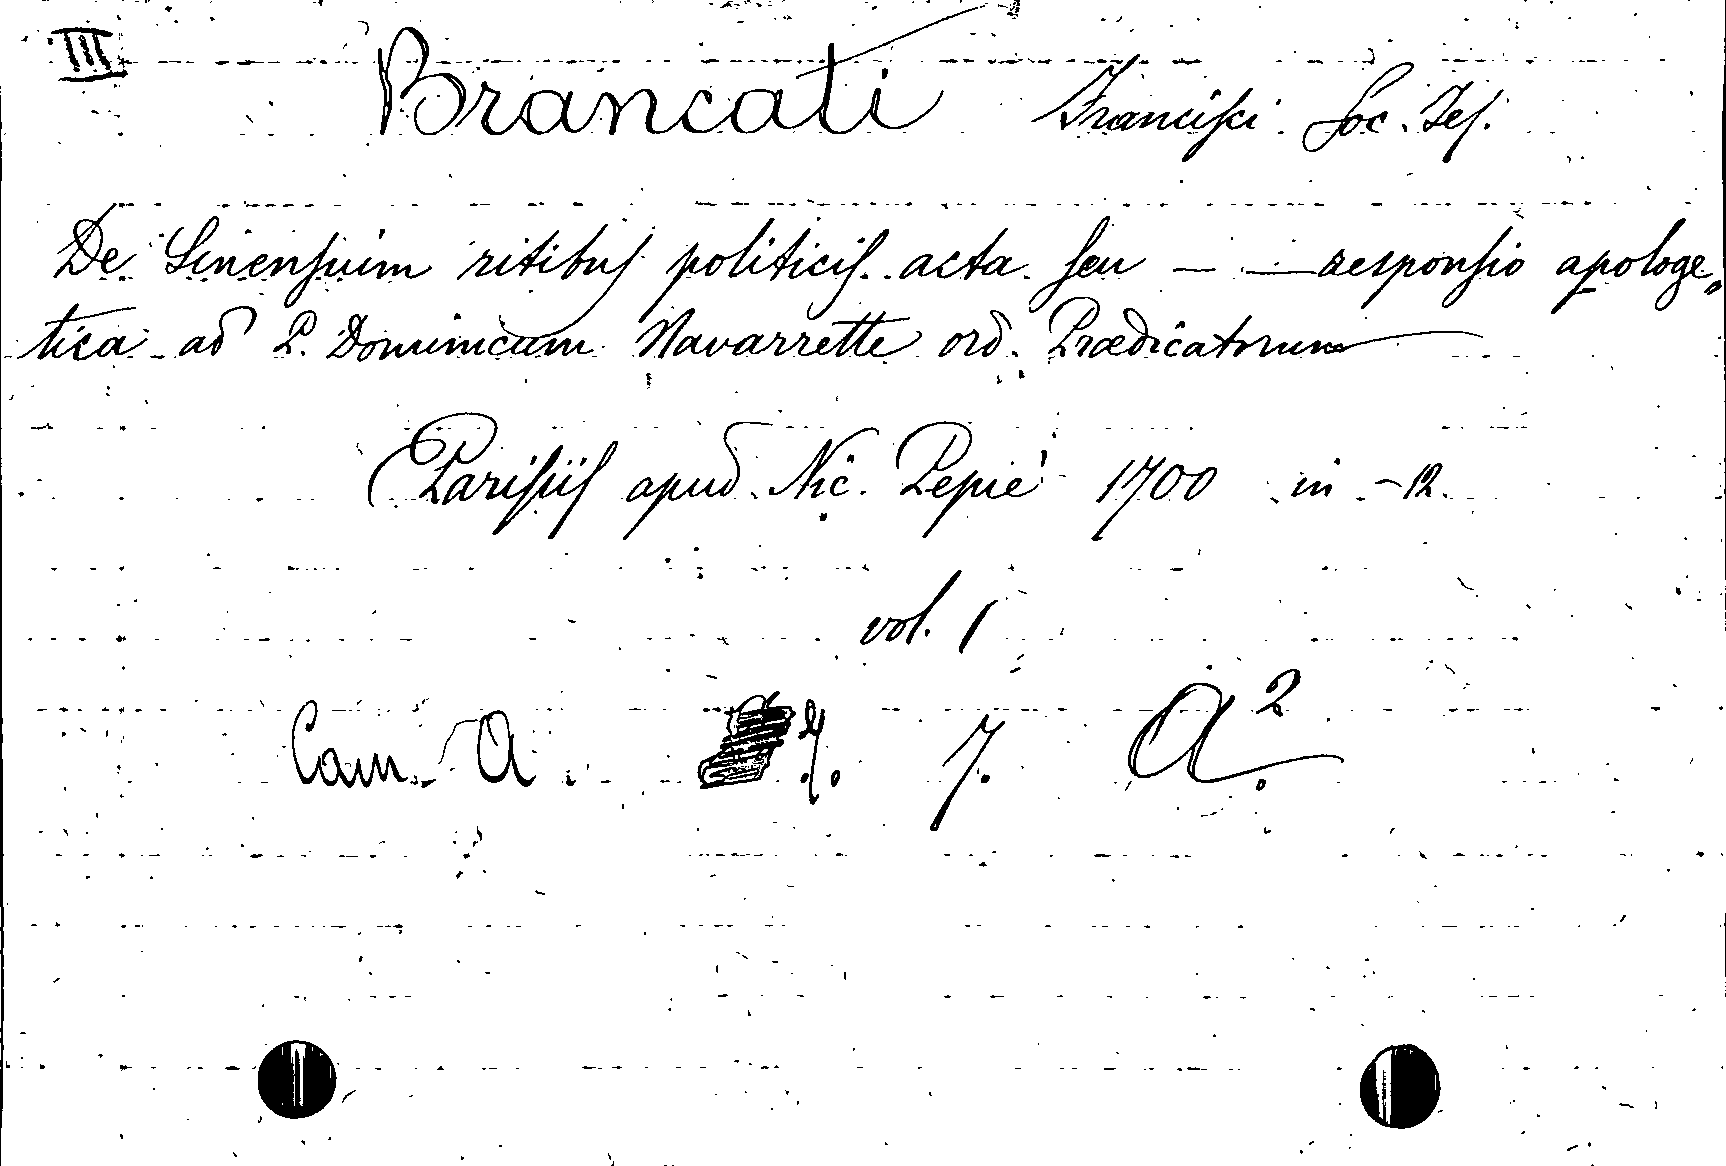 III
Brancati Francisci Soc. Jes.
De Sinensium ritibus politicis acta seu — — responsio apologe„
tica ad P. Dominicum Navarrette ord. Prædicatorum
Parisiis apud Nic. Pepiè 1700 in-12.
vol. 1
Cam. A. 7. A².